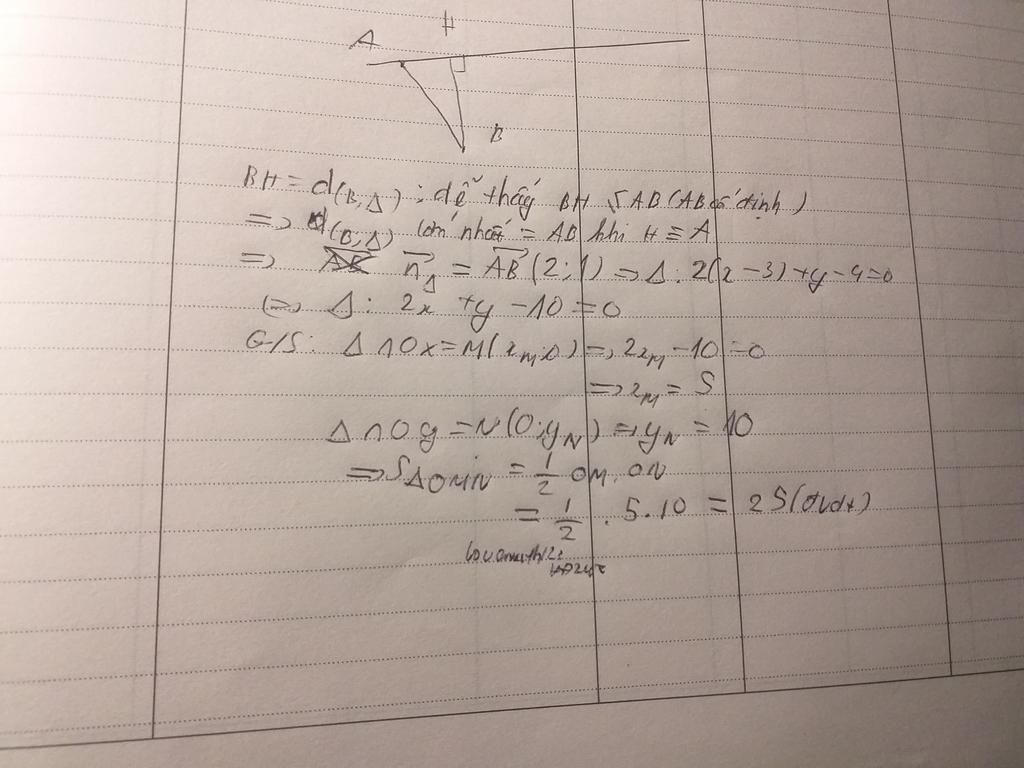 H
A
B
BH = d(B,Δ) ; dễ thấy BH ≤ AB (AB cố định)
=> d(B,Δ) lớn nhất = AB khi H ≡ A
=> n⃗Δ = AB⃗ (2;1) => Δ: 2(x-3)+y-4=0
<=> Δ: 2x + y - 10 = 0
G/S: Δ ∩ Ox = M(xM;0) => 2xM - 10 = 0
=> xM = 5
Δ ∩ Oy = N(0;yN) => yN = 10
=> SΔOMN = 1/2 OM. ON
= 1/2 . 5.10 = 25(đvdt)